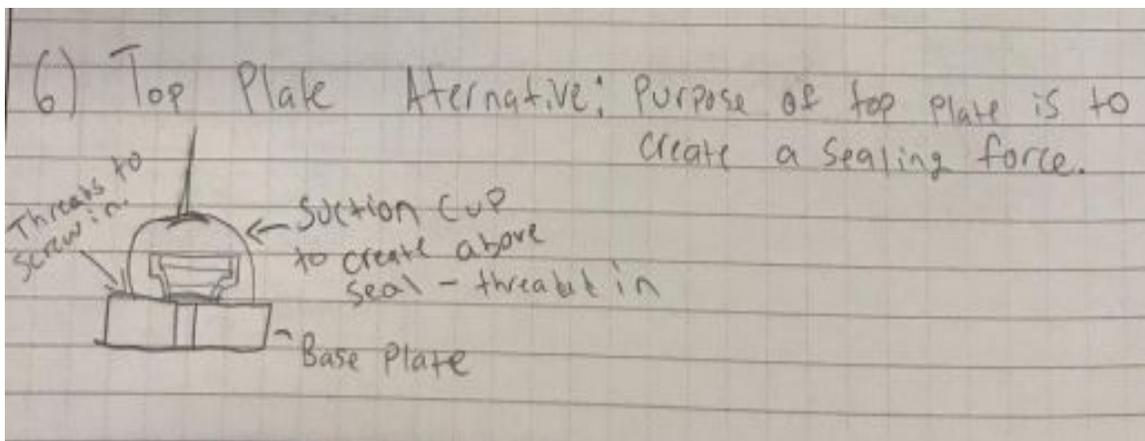 6) Top Plate Aternative: Purpose of top plate is to
create a sealing force.
Threats to
screw in.
Suction Cup
to create above
seal - in
Base Plate